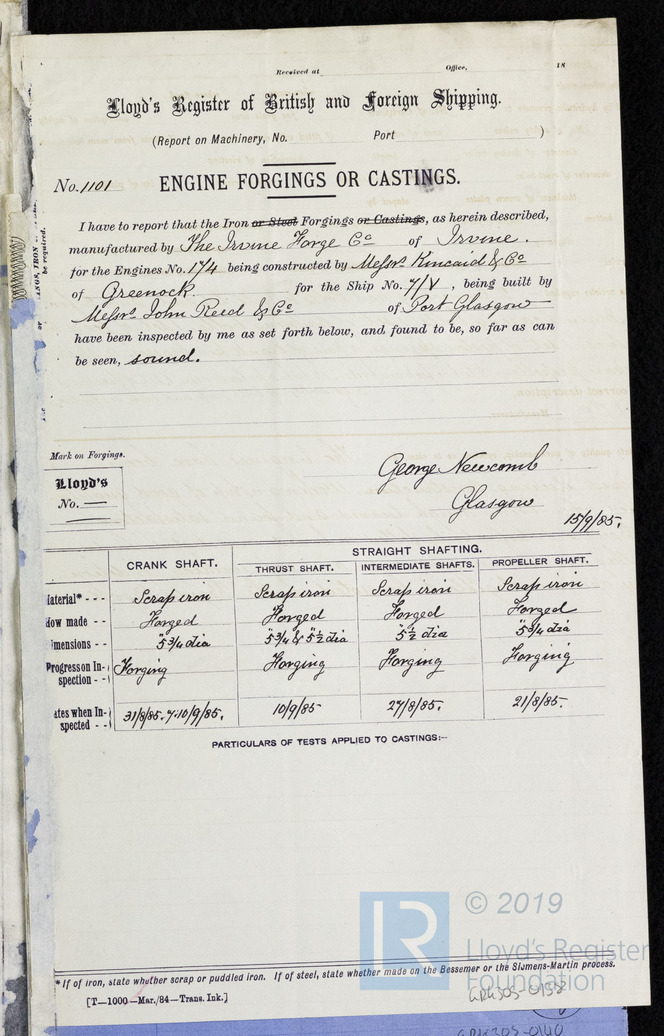 Received at Office, 18
Lloyd's Register of British and Foreign Shipping.
(Report on Machinery, No. Port )
No. 1101 ENGINE FORGINGS OR CASTINGS.
I have to report that the Iron or Steel Forgings or Castings, as herein described,
manufactured by The Irvine Forge Co of Irvine.
for the Engines No. 17/4 being constructed by Messrs Kincaid & Co
of Greenock for the Ship No. 7/V, being built by
Messrs John Reid & Co of Port Glasgow
have been inspected by me as set forth below, and found to be, so far as can
be seen, sound.
be required.
Mark on Forgings.
Lloyd's
No. —
George Newcomb
Glasgow
15/9/85.
STRAIGHT SHAFTING.
CRANK SHAFT. THRUST SHAFT. INTERMEDIATE SHAFTS. PROPELLER SHAFT.
aterial* - - - Scrap iron Scrap iron Scrap iron Scrap iron
ow made - - Forged Forged Forged Forged
mensions - - 5 3/4" dia 5 3/4" & 5 1/2" dia 5 1/2" dia 5 3/4" dia
Progress on In- Forging Forging Forging Forging
spection - -
ates when In- 31/8/85. 7.10/9/85. 10/9/85 27/8/85. 21/8/85.
spected - -
PARTICULARS OF TESTS APPLIED TO CASTINGS:—
© 2019
LR
Lloyd's Register
Foundation
*If of iron, state whether scrap or puddled iron. If of steel, state whether made on the Bessemer or the Siemens-Martin process.
[T—1000—Mar./84—Trans. Ink.]
GRK305-0138
GRK305-0140